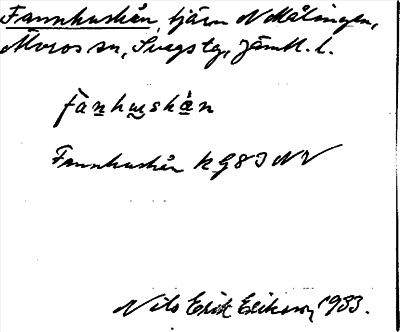 Fannhuskån, tjärn N Målingen,
Älvros sn, Svegs tg, Jämtl. l.
fànhuskä̀n
Fannhuskån k G8J NV
Nils Erik Erikson, 1983.